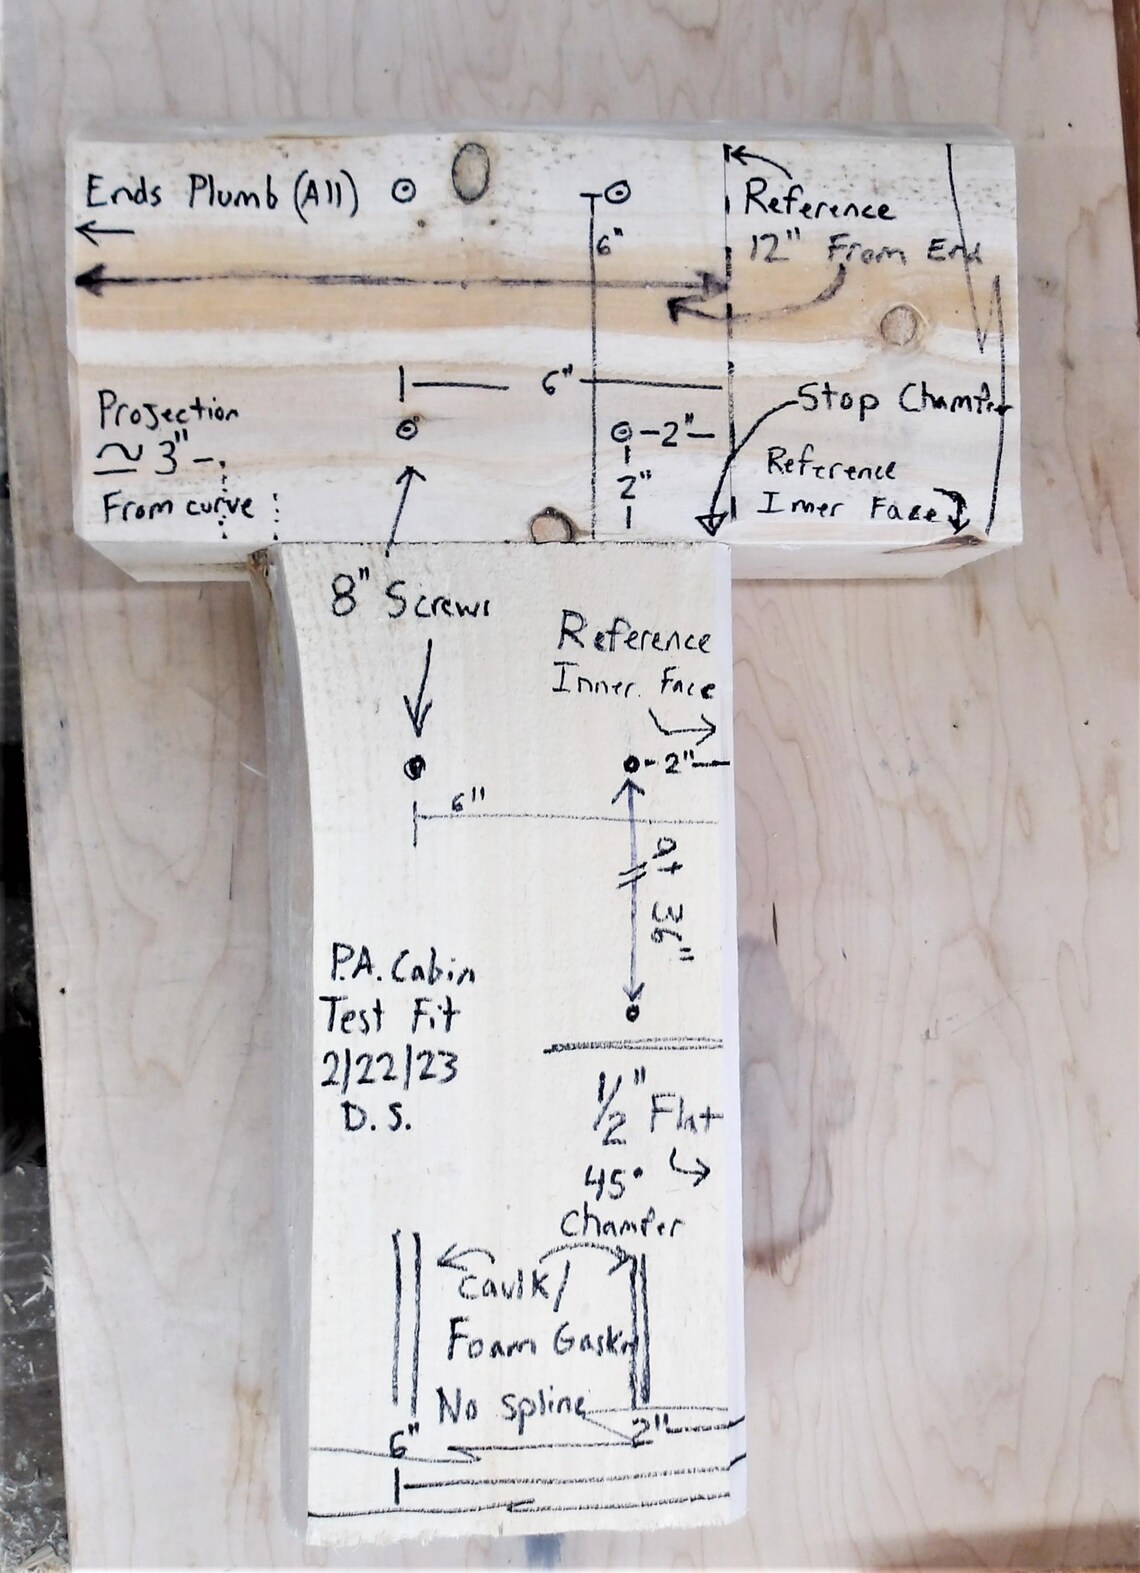 Ends Plumb (All)
6"
Reference
12" From End
6"
Stop Chamfer
Projection
≅ 3"
From curve
2"
2"
Reference
Inner Face
8" Screws
Reference
Inner Face
2"
6"
36"
P.A. Cabin
Test Fit
2/22/23
D.S.
1/2" Flat
45°
Chamfer
Caulk/
Foam Gasket
No spline
6"
2"